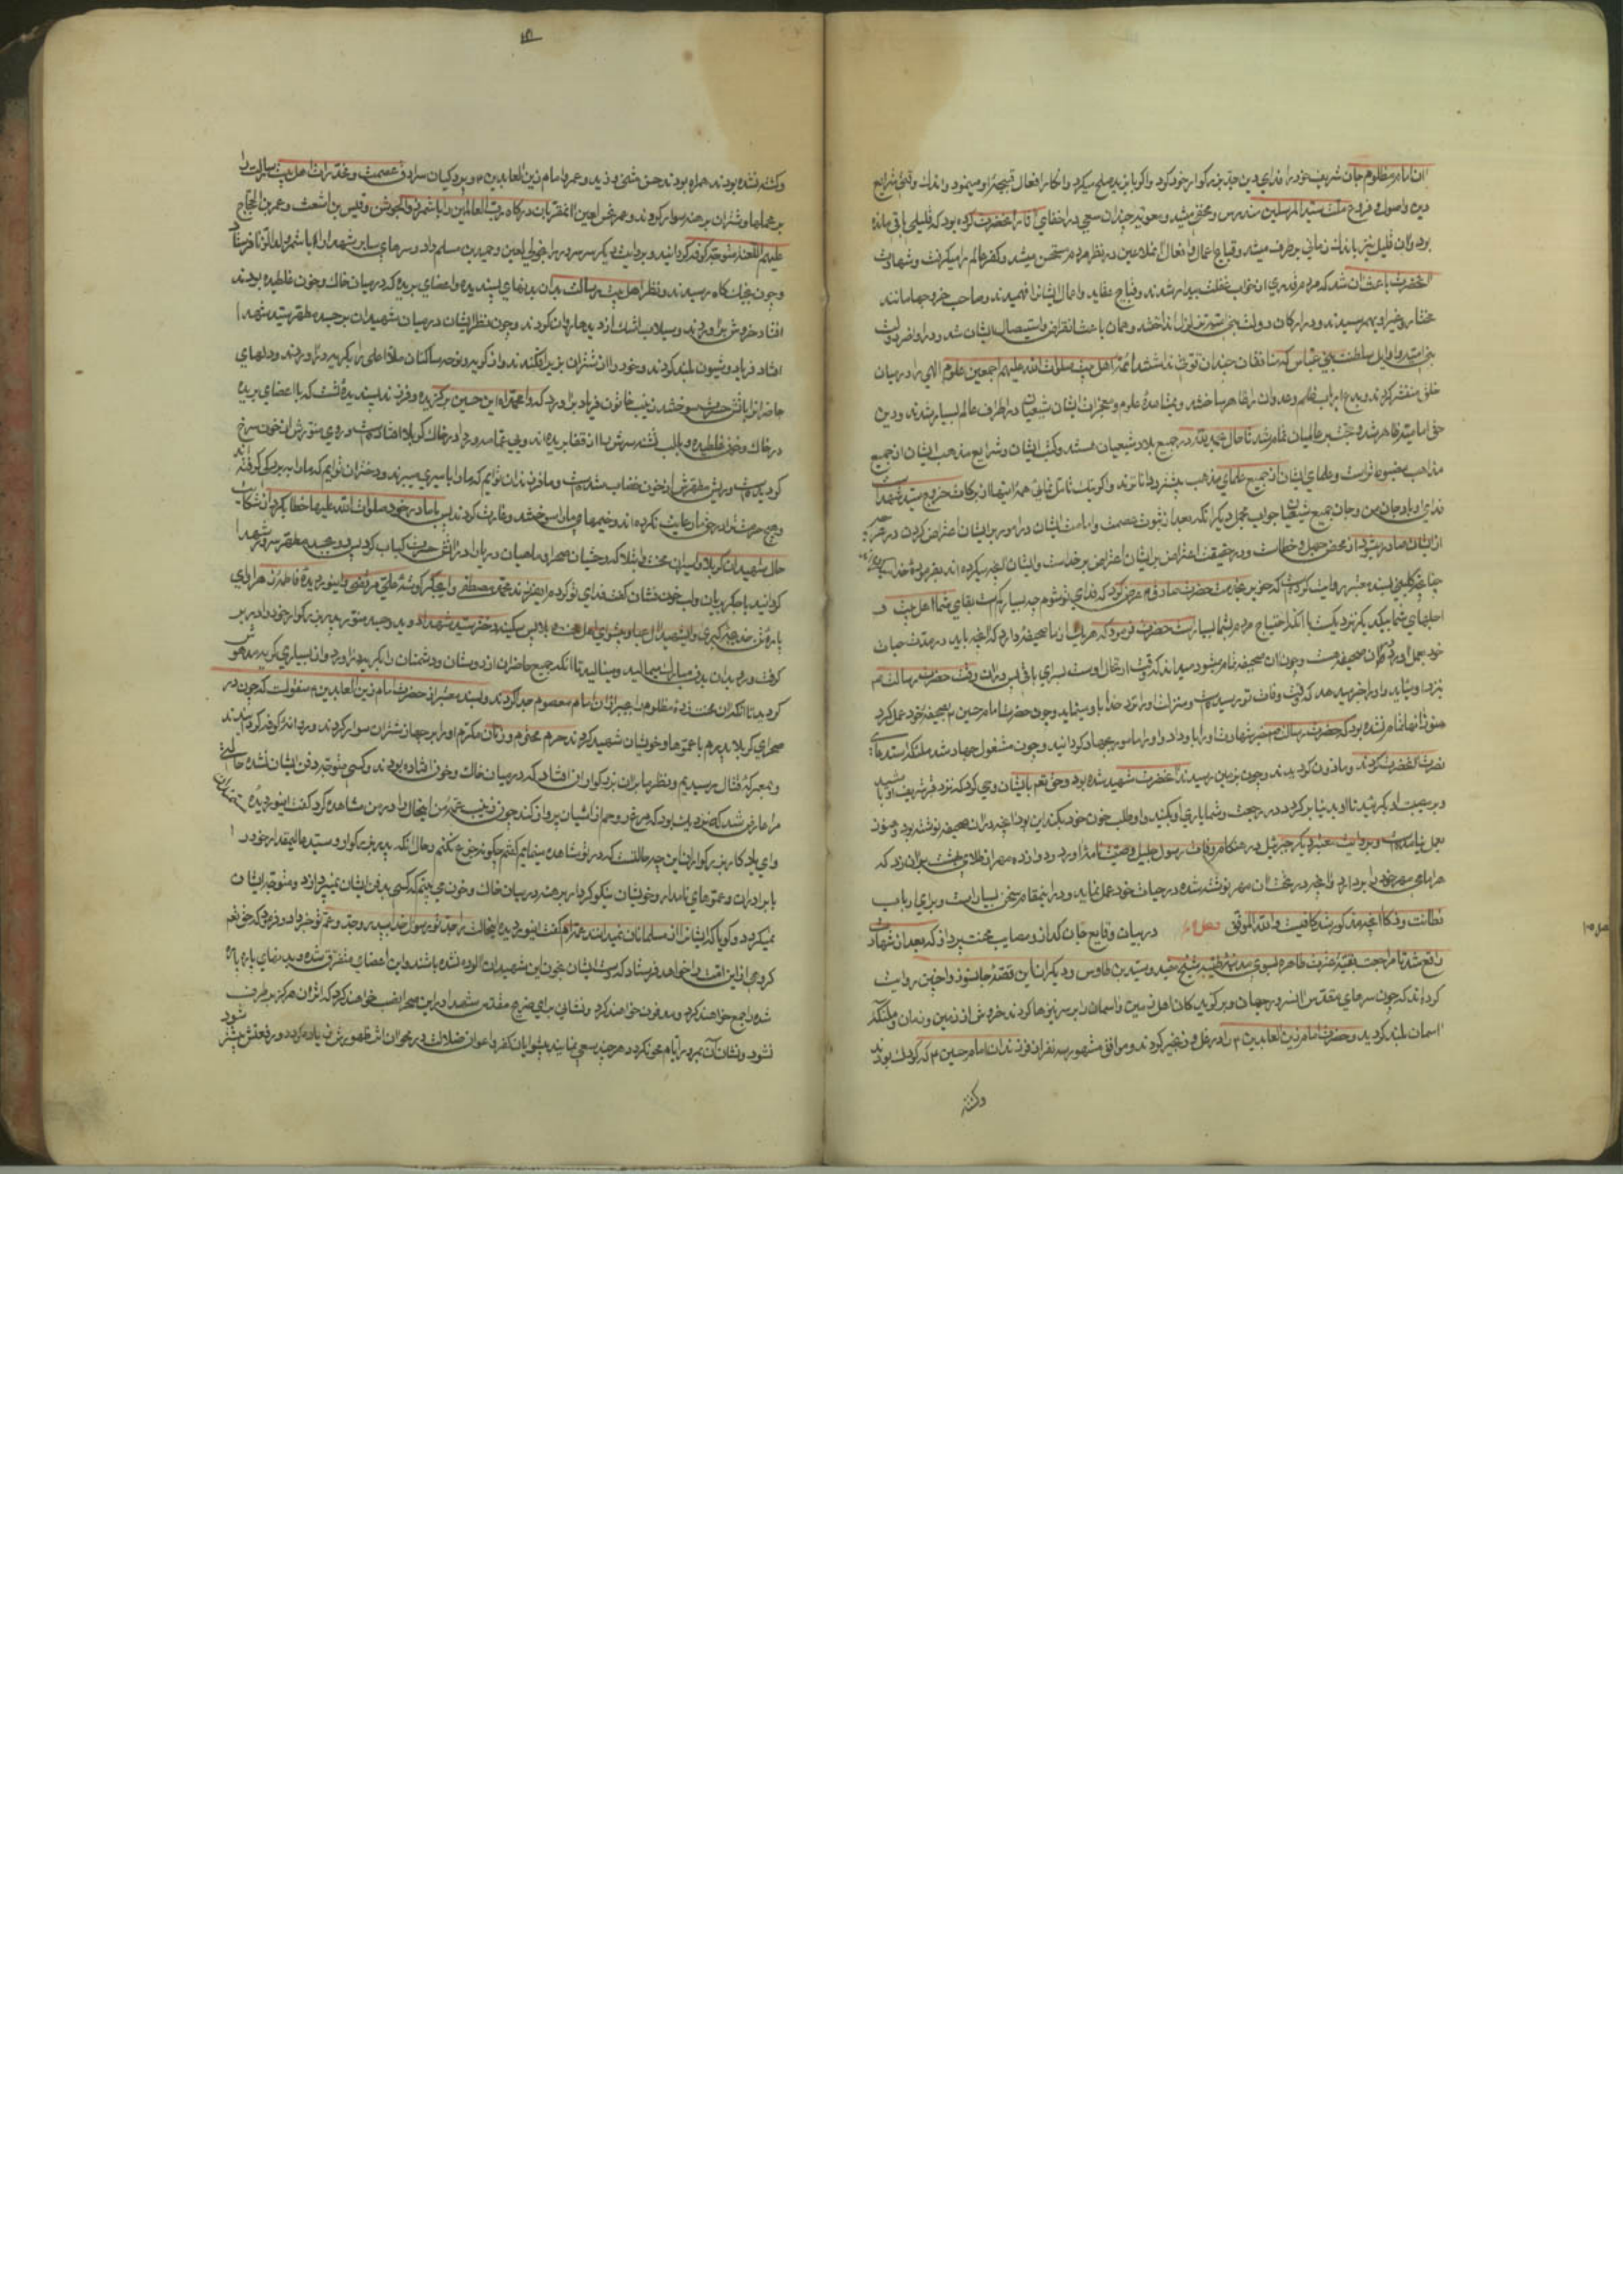 آن امام مظلوم جان شریف خود را فدای دین جد بزرگوار خود کرد و اگر با یزید صلح میکرد و انکار افعال قبیحه او مینمود در اندک وقتی شرایع
دین و اصول و فروع ملت سید المرسلین مندرس و مخفی میشد و معویه چندان سعی در اخفای آثار آنحضرت کرده بود که قلیلی باقی مانده
بود و آن قلیل نیز باندک زمانی برطرف میشد و قبایح اعمال و افعال آن ملاعین در نظر مردم مستحسن میشد و کفر عالم را میگرفت و شهادت
آنحضرت باعث آن شد که مردم قدری از خواب غفلت بیدار شدند و قبایح عقاید و اعمال ایشانرا فهمیدند و صاحب خروجها مانند
مختار و غیر او بهم رسیدند و در ارکان دولت بنی امیه تزلزل انداختند و همان باعث انقراض و استیصال ایشان شد و در اواخر دولت
بنی امیه و اوایل سلطنت بنی عباس که منافقان چندان قوتی نداشتند ائمه اهل بیت صلوات الله علیهم اجمعین علوم الهی را در میان
خلق منتشر کردند و بدع ارباب ظلم و عدوان را ظاهر ساختند و بمشاهدهٔ علوم و معجزات ایشان شیعیان در اطراف عالم بسیار شدند و دین
حق امامیه ظاهر شد و حجت بر عالمیان تمام شد تا حال بحمد الله در جمیع بلاد شیعیان هستند و کتب ایشان و شرایع مذهب ایشان از جمیع
مذاهب مضبوط‌تر است و علمای ایشان از جمیع علمای مذهب بیشتر و داناترند و اگر نیک تامل نمائی همه اینها از برکات خروج سید شهداست
فدای او باد جان من و جان جمیع شیعیان جواب مجمل دیگر آنکه بعد از ثبوت عصمت و امامت ایشان در امور بر ایشان اعتراض کردن و در هر چه
از ایشان صادر شود از محض جهل و خطاست و در حقیقت اعتراض بر ایشان اعتراض بر خداست و ایشان آنچه میکرده‌اند بفرمودهٔ خدا
چنانچه کلینی بسند معتبر روایت کرده است که حریز بخدمت حضرت صادق ع عرض کرد که فدای تو شوم چه بسیار کم است بقای شما اهل بیت و
اجلهای شما بیکدیگر نزدیک با آنکه احتیاج مردم بشما بسیار است حضرت فرمود که هر یک از ما صحیفه دارد که آنچه باید در مدت حیات
خود بعمل آورد در آن صحیفه هست و چون آن صحیفه تمام میشود میداند که وقت ارتحال اوست بسرای باقی پس در آن وقت حضرت رسالت ص
بنزد او میاید و او را خبر میدهد که وقت وفات تو رسیده است و منزلت او را نزد خدا باو مینماید و چون حضرت امام حسین ع بصحیفه خود عمل کرد
هنوز آنها تمام نشده بود که حضرت رسالت ص خبر شهادت او را باو داد و او را مامور بجهاد گردانید و چون مشغول جهاد شد ملئکه استدعای
نصرت آنحضرت کردند و ماذون گردیدند و چون بزمین رسیدند آنحضرت شهید شده بود و حق تعالی بایشان وحی کرد که نزد قبر شریف او باشید
و بر مصیبت او بگریید تا او بدنیا برگردد در رجعت و شما یاری او بکنید و او طلب خون خود بکند این بود آنچه در آن صحیفه نوشته بود و هنوز
بعمل نیامده است و بروایت معتبر دیگر جبرئیل در هنگام وفات رسول جلیل وصیت نامهٔ آورد و دوازده مهر از طلای بهشت بر آن زد که
هر امامی مهر خود را بردارد و آنچه در تحت آن مهر نوشته شده در حیات خود عمل نماید و در این مقام سخن بسیار است و برای ارباب
فطانت و ذکا آنچه مذکور شد کافیست و الله الموفق فصل در بیان وقایع جان گداز و مصایب محنت پرداز که بعد از شهادت
واقع شد تا مراجعت بقیهٔ عترت طاهره بسوی مدینه طیبه شیخ مفید و سید بن طاوس و دیگران این قصهٔ جانسوز و اخبار روایت
کرده‌اند که چون سرهای مقدس آن سروران جهان و برگزیدگان اهل زمین و آسمان را بر سر نیزها کردند خروش از زمین و زمان و ملئکه
آسمان بلند گردید و حضرت امام زین العابدین ع را در غل و زنجیر کردند و موافق مشهور سه نفر از فرزندان امام حسن ع که کودک بودند
وکشته
وکشته نشده بودند همراه بودند حسن مثنی و زید و عمرو با امام زین العابدین ع و پردگیان سرادق عصمت و مخدرات اهل بیت رسالت را
بر محملها و شتران برهنه سوار کردند و عمر نحس لعین آن مقربان درگاه رب العالمین را با شمر ذی الجوشن و قیس بن اشعث و عمرو بن الحجاج
علیهم اللعنه متوجه کوفه گردانید و بروایت دیگر سر سرور را بخولی لعین و حمید بن مسلم داد و سرهای سایر شهدا را با شمر و آن ملاعین فرستاد
و چون بجنگ گاه رسیدند و نظر اهل بیت رسالت بدان بدنهای پسندیده و اعضای بریده که در میان خاک و خون غلطیده بودند
افتاد خروش برآوردند و سیلاب اشک از دیدها روان کردند و چون نظر ایشان در میان شهیدان بر جسد مطهر سید شهدا
افتاد فریاد و شیون بلند کردند و خود را از شتران بزیر افکندند و از گریه و نوحه ساکنان ملاء اعلی را بگریه درآوردند و دلهای
حاضرانرا بآتش حسرت سوختند زینب خاتون فریاد برآورد که وا محمداه این حسین برگزیده و فرزند پسندیدهٔ تست که با اعضای بریده
در خاک و خون غلطیده و با لب تشنه سرش را از قفا بریده‌اند و بی عمامه و ردا در خاک کربلا افتاده است و روی منورش از خون سرخ
گردیده است و ریش مطهرش از خون خضاب شده است و ما فرزندان توایم که ما را باسیری میبرند و دختران توایم که ما را به بردگی گرفتند
و هیچ حرمت ترا در حق ما رعایت نکرده‌اند و خیمهای ما را سوختند و غارت کردند پس با مادر خود صلوات الله علیها خطاب کرد و از شکایت
حال شهیدان کربلا و اسیران محنت و ابتلا که وحشیان صحرا و ماهیان دریا را در آتش حسرت کباب کرد پس رو بجسد مطهر سید شهدا
گردانید با جگر بریان و لب خون فشان گفت فدای تو گردم ای فرزند محمد مصطفی و ای جگر گوشهٔ علی مرتضی و ای نور دیدهٔ فاطمه زهرا و ای
پارهٔ تن خدیجه کبری و ای شهید آل عبا و پیشوای اهل محنت و بلا پس سکینه دختر سید شهدا دوید و جسد منور پدر بزرگوار خود را در بر
گرفت و رو بدان بدن مبارک میمالید و مینالید تا آنکه جمیع حاضران از دوستان و دشمنان را بگریه درآورد و از بسیاری گریه مدهوش
گردید تا آنکه آن محنت زدهٔ مظلوم را بجبر از آن امام معصوم جدا کردند و بسند معتبر از حضرت امام زین العابدین ع منقولست که چون در
صحرای کربلا پدرم با عموها و خویشان شهید گردیدند حرم محترم و زنان مکرم او را بر جهاز شتران سوار کردند و روانه کوفه گردانیدند
و بمعرکهٔ قتال رسیدیم و نظر ما بر آن بزرگواران افتاد که در میان خاک و خون افتاده بودند و کسی متوجه دفن ایشان نشده حالتی
مرا عارض شد که نزدیک بود که مرغ روحم از آشیان پرواز کند چون زینب عمهٔ من این حال را در من مشاهده کرد گفت ای نور دیدهٔ
و ای یادگار بزرگواران این چه حالتست که در تو مشاهده مینمایم گفتم چگونه جزع نکنم و حال آنکه پدر بزرگوار و سید عالیمقدار خود را
با برادران و عموهای نامدار و خویشان نیکو کردار برهنه در میان خاک و خون می بینم که کسی بدفن ایشان نمیپردازد و متوجه ایشان
نمیگردد و گویا که ایشانرا از مسلمانان نمیدانند عمه‌ام گفت ای نور دیده از این حالت بر جد تو رسول خدا پدر و جد و عم تو خبر داد و فرمود که حق تعالی
گروهی از این امت را خواهد فرستاد که دست ایشان بخون این شهیدان آلوده نشده باشند و این اعضای متفرق شده و بدنهای پاره پاره
شده را جمع خواهند کرد و مدفون خواهند کرد و نشانی برای ضریح مقدس سید شهدا در این صحرا نصب خواهند کرد که اثر آن هرگز برطرف
نشود و نشان آن بمرور ایام محو نگردد و هر چند سعی نمایند پیشوایان کفر و اعوان ضلالت در محو آن اثر ظهورش زیاده گردد و رفعتش بیشتر شود